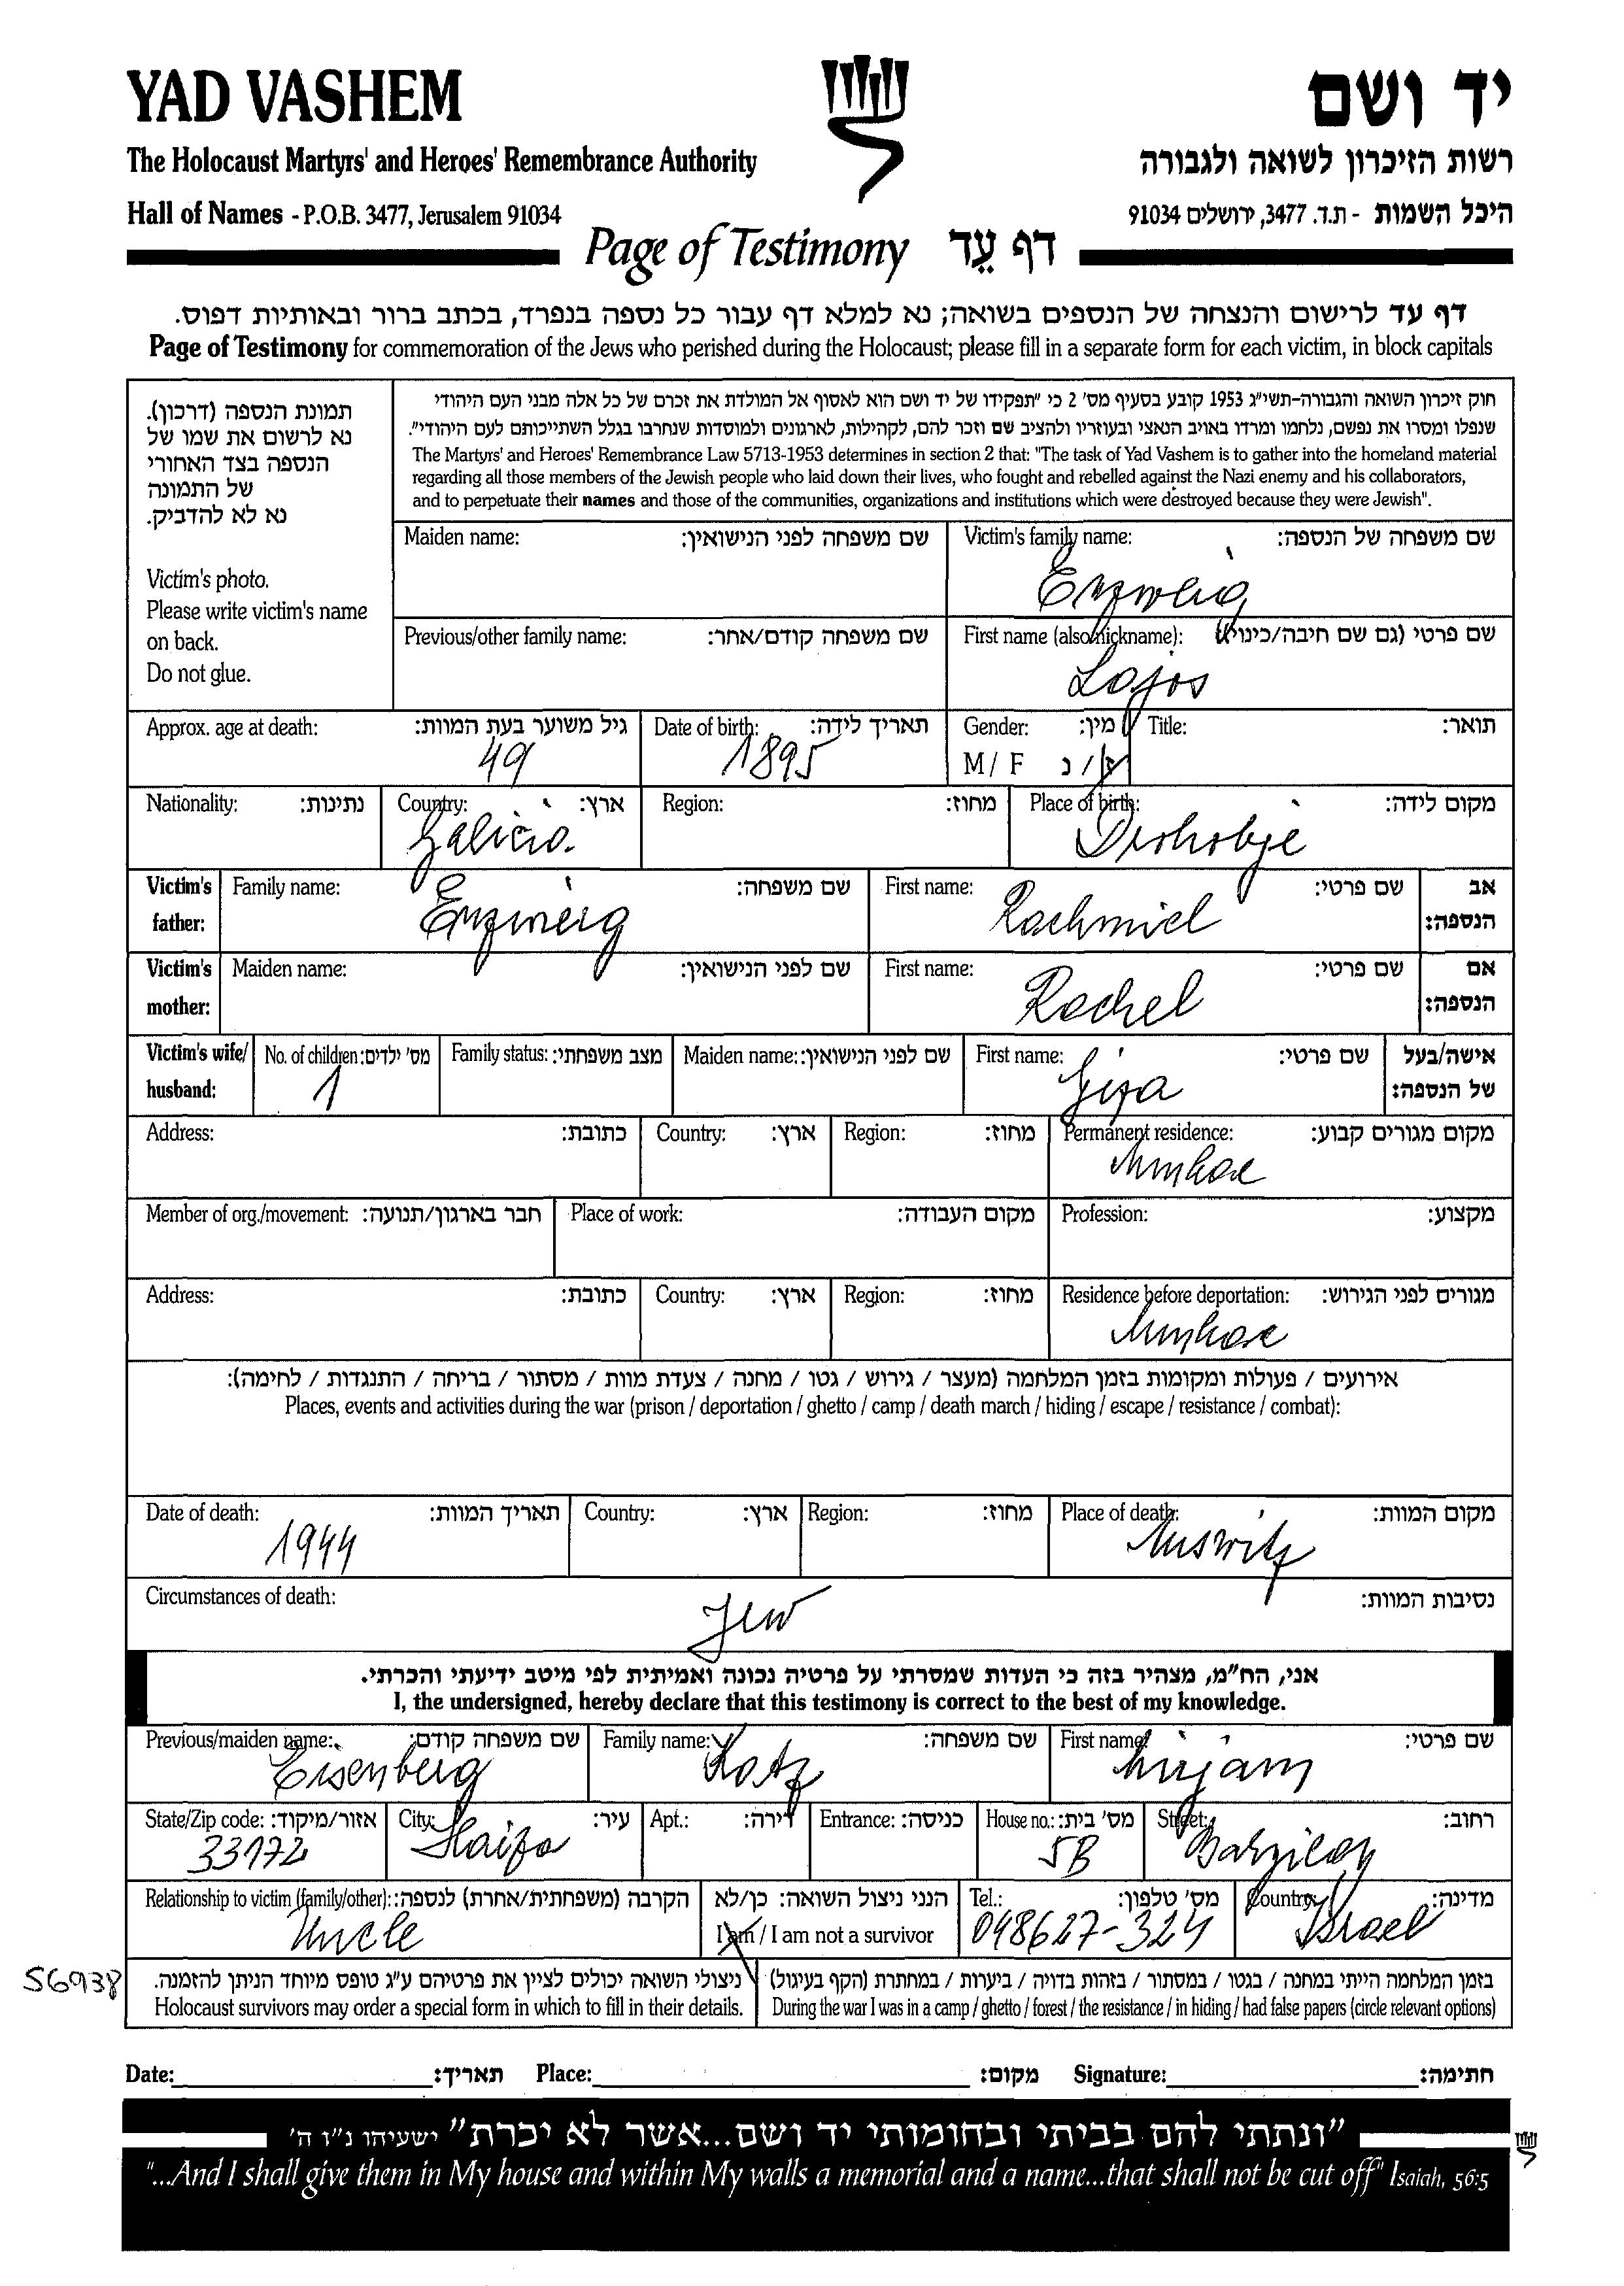 YAD VASHEM
יד ושם
The Holocaust Martyrs' and Heroes' Remembrance Authority
רשות הזיכרון לשואה ולגבורה
Hall of Names - P.O.B. 3477, Jerusalem 91034
היכל השמות - ת.ד. 3477, ירושלים 91034
Page of Testimony דף עֵד
דף עד לרישום והנצחה של הנספים בשואה; נא למלא דף עבור כל נספה בנפרד, בכתב ברור ובאותיות דפוס.
Page of Testimony for commemoration of the Jews who perished during the Holocaust; please fill in a separate form for each victim, in block capitals
תמונת הנספה (דרכון).
נא לרשום את שמו של
הנספה בצד האחורי
של התמונה
נא לא להדביק.
Victim's photo.
Please write victim's name
on back.
Do not glue.
חוק זיכרון השואה והגבורה-תשי"ג 1953 קובע בסעיף מס' 2 כי "תפקידו של יד ושם הוא לאסוף אל המולדת את זכרם של כל אלה מבני העם היהודי
שנפלו ומסרו את נפשם, נלחמו ומרדו באויב הנאצי ובעוזריו ולהציב שם וזכר להם, לקהילות, לארגונים ולמוסדות שנחרבו בגלל השתייכותם לעם היהודי".
The Martyrs' and Heroes' Remembrance Law 5713-1953 determines in section 2 that: "The task of Yad Vashem is to gather into the homeland material
regarding all those members of the Jewish people who laid down their lives, who fought and rebelled against the Nazi enemy and his collaborators,
and to perpetuate their names and those of the communities, organizations and institutions which were destroyed because they were Jewish".
Maiden name: שם משפחה לפני הנישואין: Victim's family name: שם משפחה של הנספה:
Enzweig
Previous/other family name: שם משפחה קודם/אחר: First name (also nickname): שם פרטי (גם שם חיבה/כינוי):
Lajos
Approx. age at death: גיל משוער בעת המוות: Date of birth: תאריך לידה: Gender: מין: Title: תואר:
49 1895 M / F ז / נ
Nationality: נתינות: Country: ארץ: Region: מחוז: Place of birth: מקום לידה:
Galicia. Drohobje
Victim's father: Family name: שם משפחה: First name: שם פרטי: אב הנספה:
Enzweig Rachmiel
Victim's mother: Maiden name: שם לפני הנישואין: First name: שם פרטי: אם הנספה:
Rachel
Victim's wife/ husband: No. of children: מס' ילדים: Family status: מצב משפחתי: Maiden name: שם לפני הנישואין: First name: שם פרטי: אישה/בעל של הנספה:
1 Giza
Address: כתובת: Country: ארץ: Region: מחוז: Permanent residence: מקום מגורים קבוע:
Munkac
Member of org./movement: חבר בארגון/תנועה: Place of work: מקום העבודה: Profession: מקצוע:
Address: כתובת: Country: ארץ: Region: מחוז: Residence before deportation: מגורים לפני הגירוש:
Munkac
אירועים / פעולות ומקומות בזמן המלחמה (מעצר / גירוש / גטו / מחנה / צעדת מוות / מסתור / בריחה / התנגדות / לחימה):
Places, events and activities during the war (prison / deportation / ghetto / camp / death march / hiding / escape / resistance / combat):
Date of death: תאריך המוות: Country: ארץ: Region: מחוז: Place of death: מקום המוות:
1944 Auswitz
Circumstances of death: נסיבות המוות:
Jew
אני, הח"מ, מצהיר בזה כי העדות שמסרתי על פרטיה נכונה ואמיתית לפי מיטב ידיעתי והכרתי.
I, the undersigned, hereby declare that this testimony is correct to the best of my knowledge.
Previous/maiden name: שם משפחה קודם: Family name: שם משפחה: First name: שם פרטי:
Eisenberg Katz Mirjam
State/Zip code: אזור/מיקוד: City: עיר: Apt.: דירה: Entrance: כניסה: House no.: מס' בית: Street: רחוב:
33172 Haifa 5B Barzilay
Relationship to victim (family/other): הקרבה (משפחתית/אחרת) לנספה: הנני ניצול השואה: כן/לא Tel.: מס' טלפון: Country: מדינה:
Uncle I am / I am not a survivor 048627-324 Israel
56938
ניצולי השואה יכולים לציין את פרטיהם ע"ג טופס מיוחד הניתן להזמנה. בזמן המלחמה הייתי במחנה / בגטו / במסתור / בזהות בדויה / ביערות / במחתרת (הקף בעיגול)
Holocaust survivors may order a special form in which to fill in their details. During the war I was in a camp / ghetto / forest / the resistance / in hiding / had false papers (circle relevant options)
Date: תאריך: Place: מקום: Signature: חתימה:
"ונתתי להם בביתי ובחומותי יד ושם...אשר לא יכרת" ישעיהו נ"ו ה'
"...And I shall give them in My house and within My walls a memorial and a name...that shall not be cut off" Isaiah, 56:5